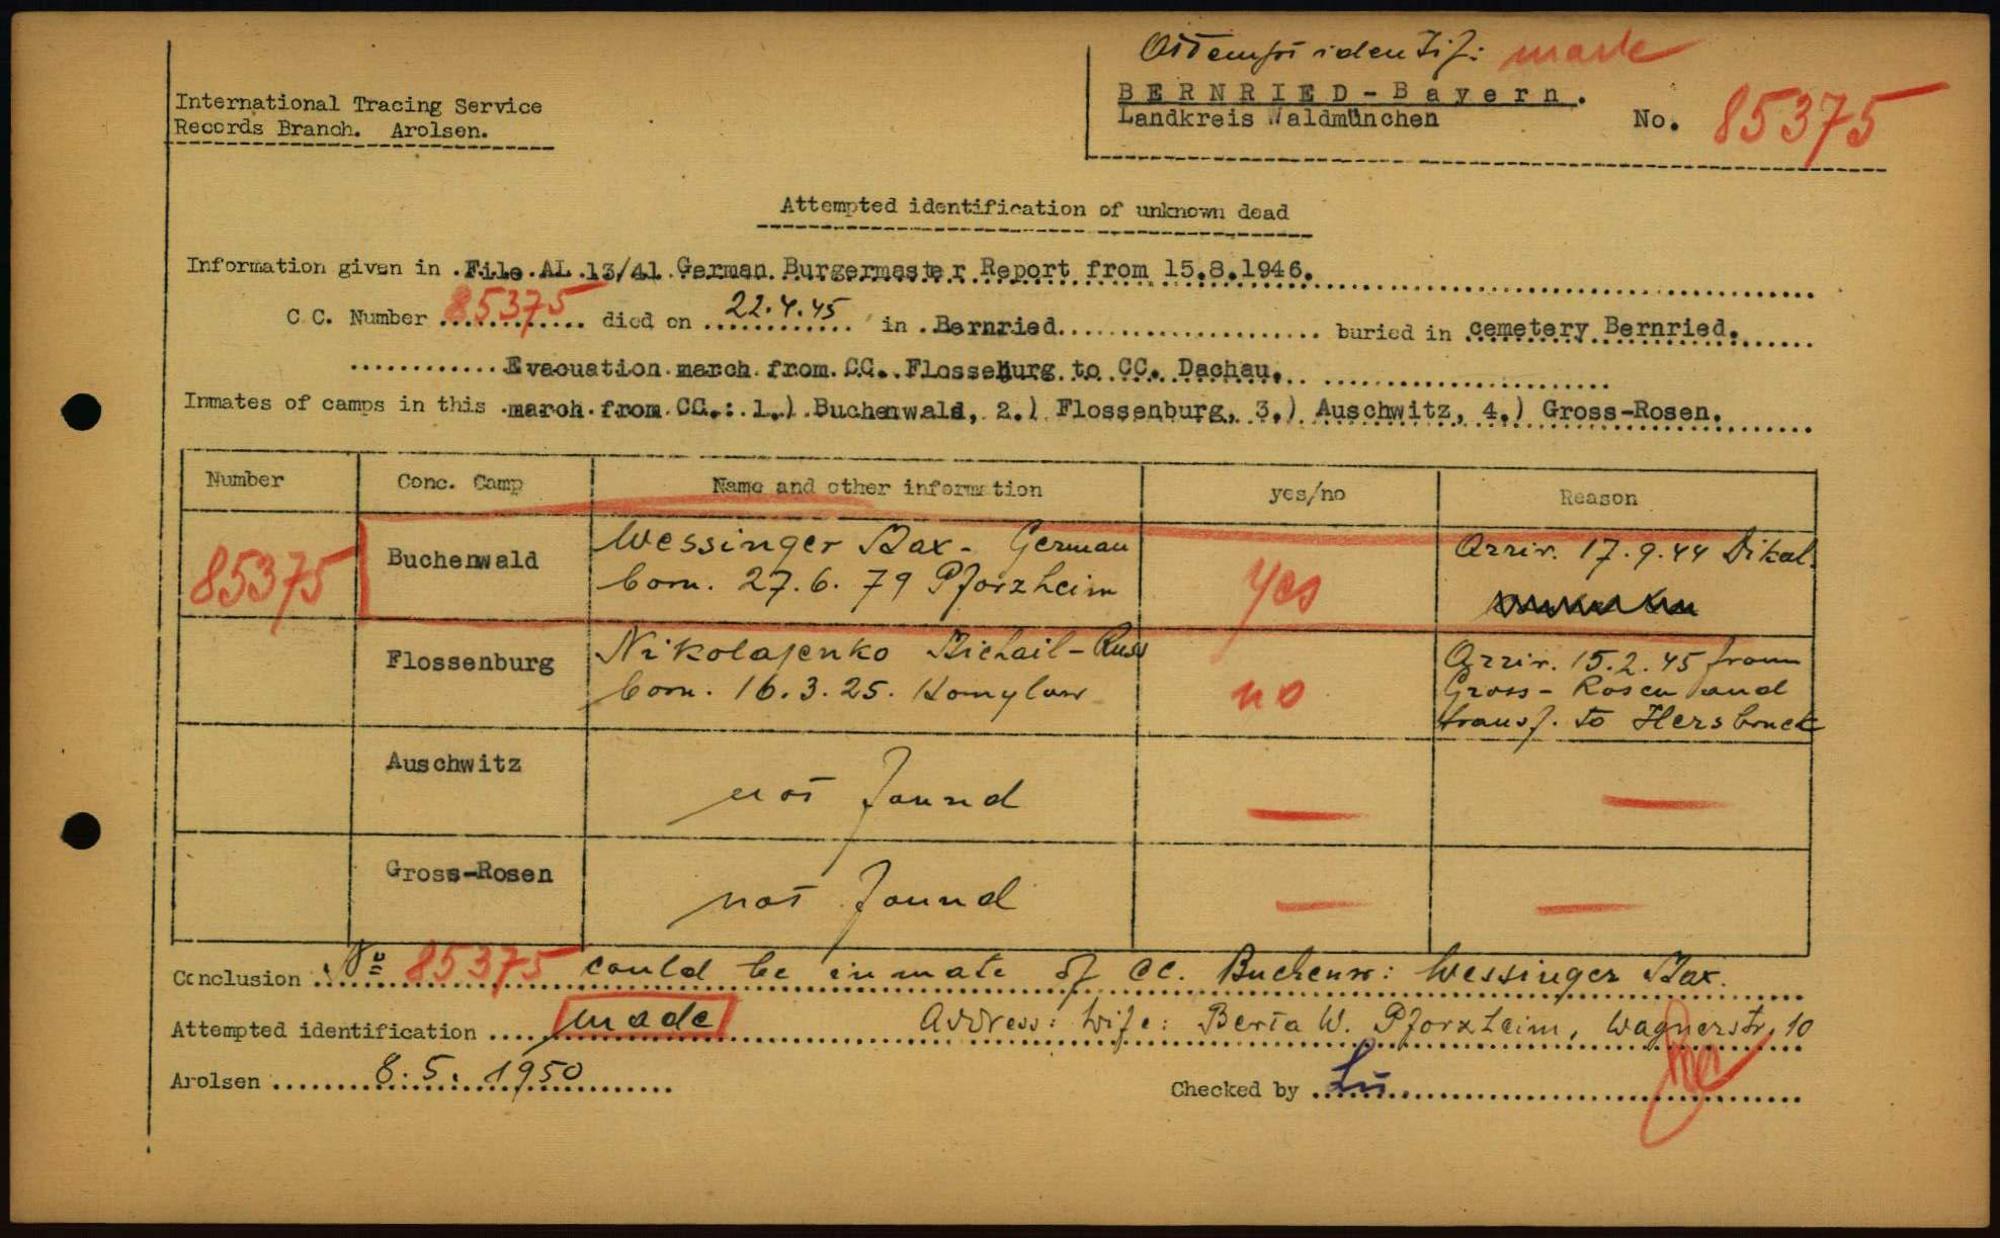 Attempt identif: made
International Tracing Service
Records Branch. Arolsen.
BERNRIED-Bayern.
Landkreis Waldmünchen
No. 85375
Attempted identification of unknown dead
Information given in .File.AL.13/41.German.Burgermaster Report from 15.8.1946.
C.C. Number 85375 died on 22.4.45 in .Bernried. buried in cemetery Bernried.
Evacuation march from CC. Flossenburg to CC. Dachau.
Inmates of camps in this march from CC.: 1.) Buchenwald, 2.) Flossenburg, 3.) Auschwitz, 4.) Gross-Rosen.
Number Conc. Camp Name and other information yes/no Reason
85375 Buchenwald Wessinger Max - German born. 27.6.79 Pforzheim yes Arriv. 17.9.44
Flossenburg Nikolajenko Michail - Russ born. 16.3.25. no Arriv. 15.2.45 from Gross-Rosen and transf. to Hersbruck
Auschwitz not found — —
Gross-Rosen not found — —
Conclusion No 85375 could be inmate of CC. Buchenw: Wessinger Max.
Attempted identification made Address: wife: Berta W. Pforzheim, Wagnerstr. 10
Arolsen 8.5.1950 Checked by Lü